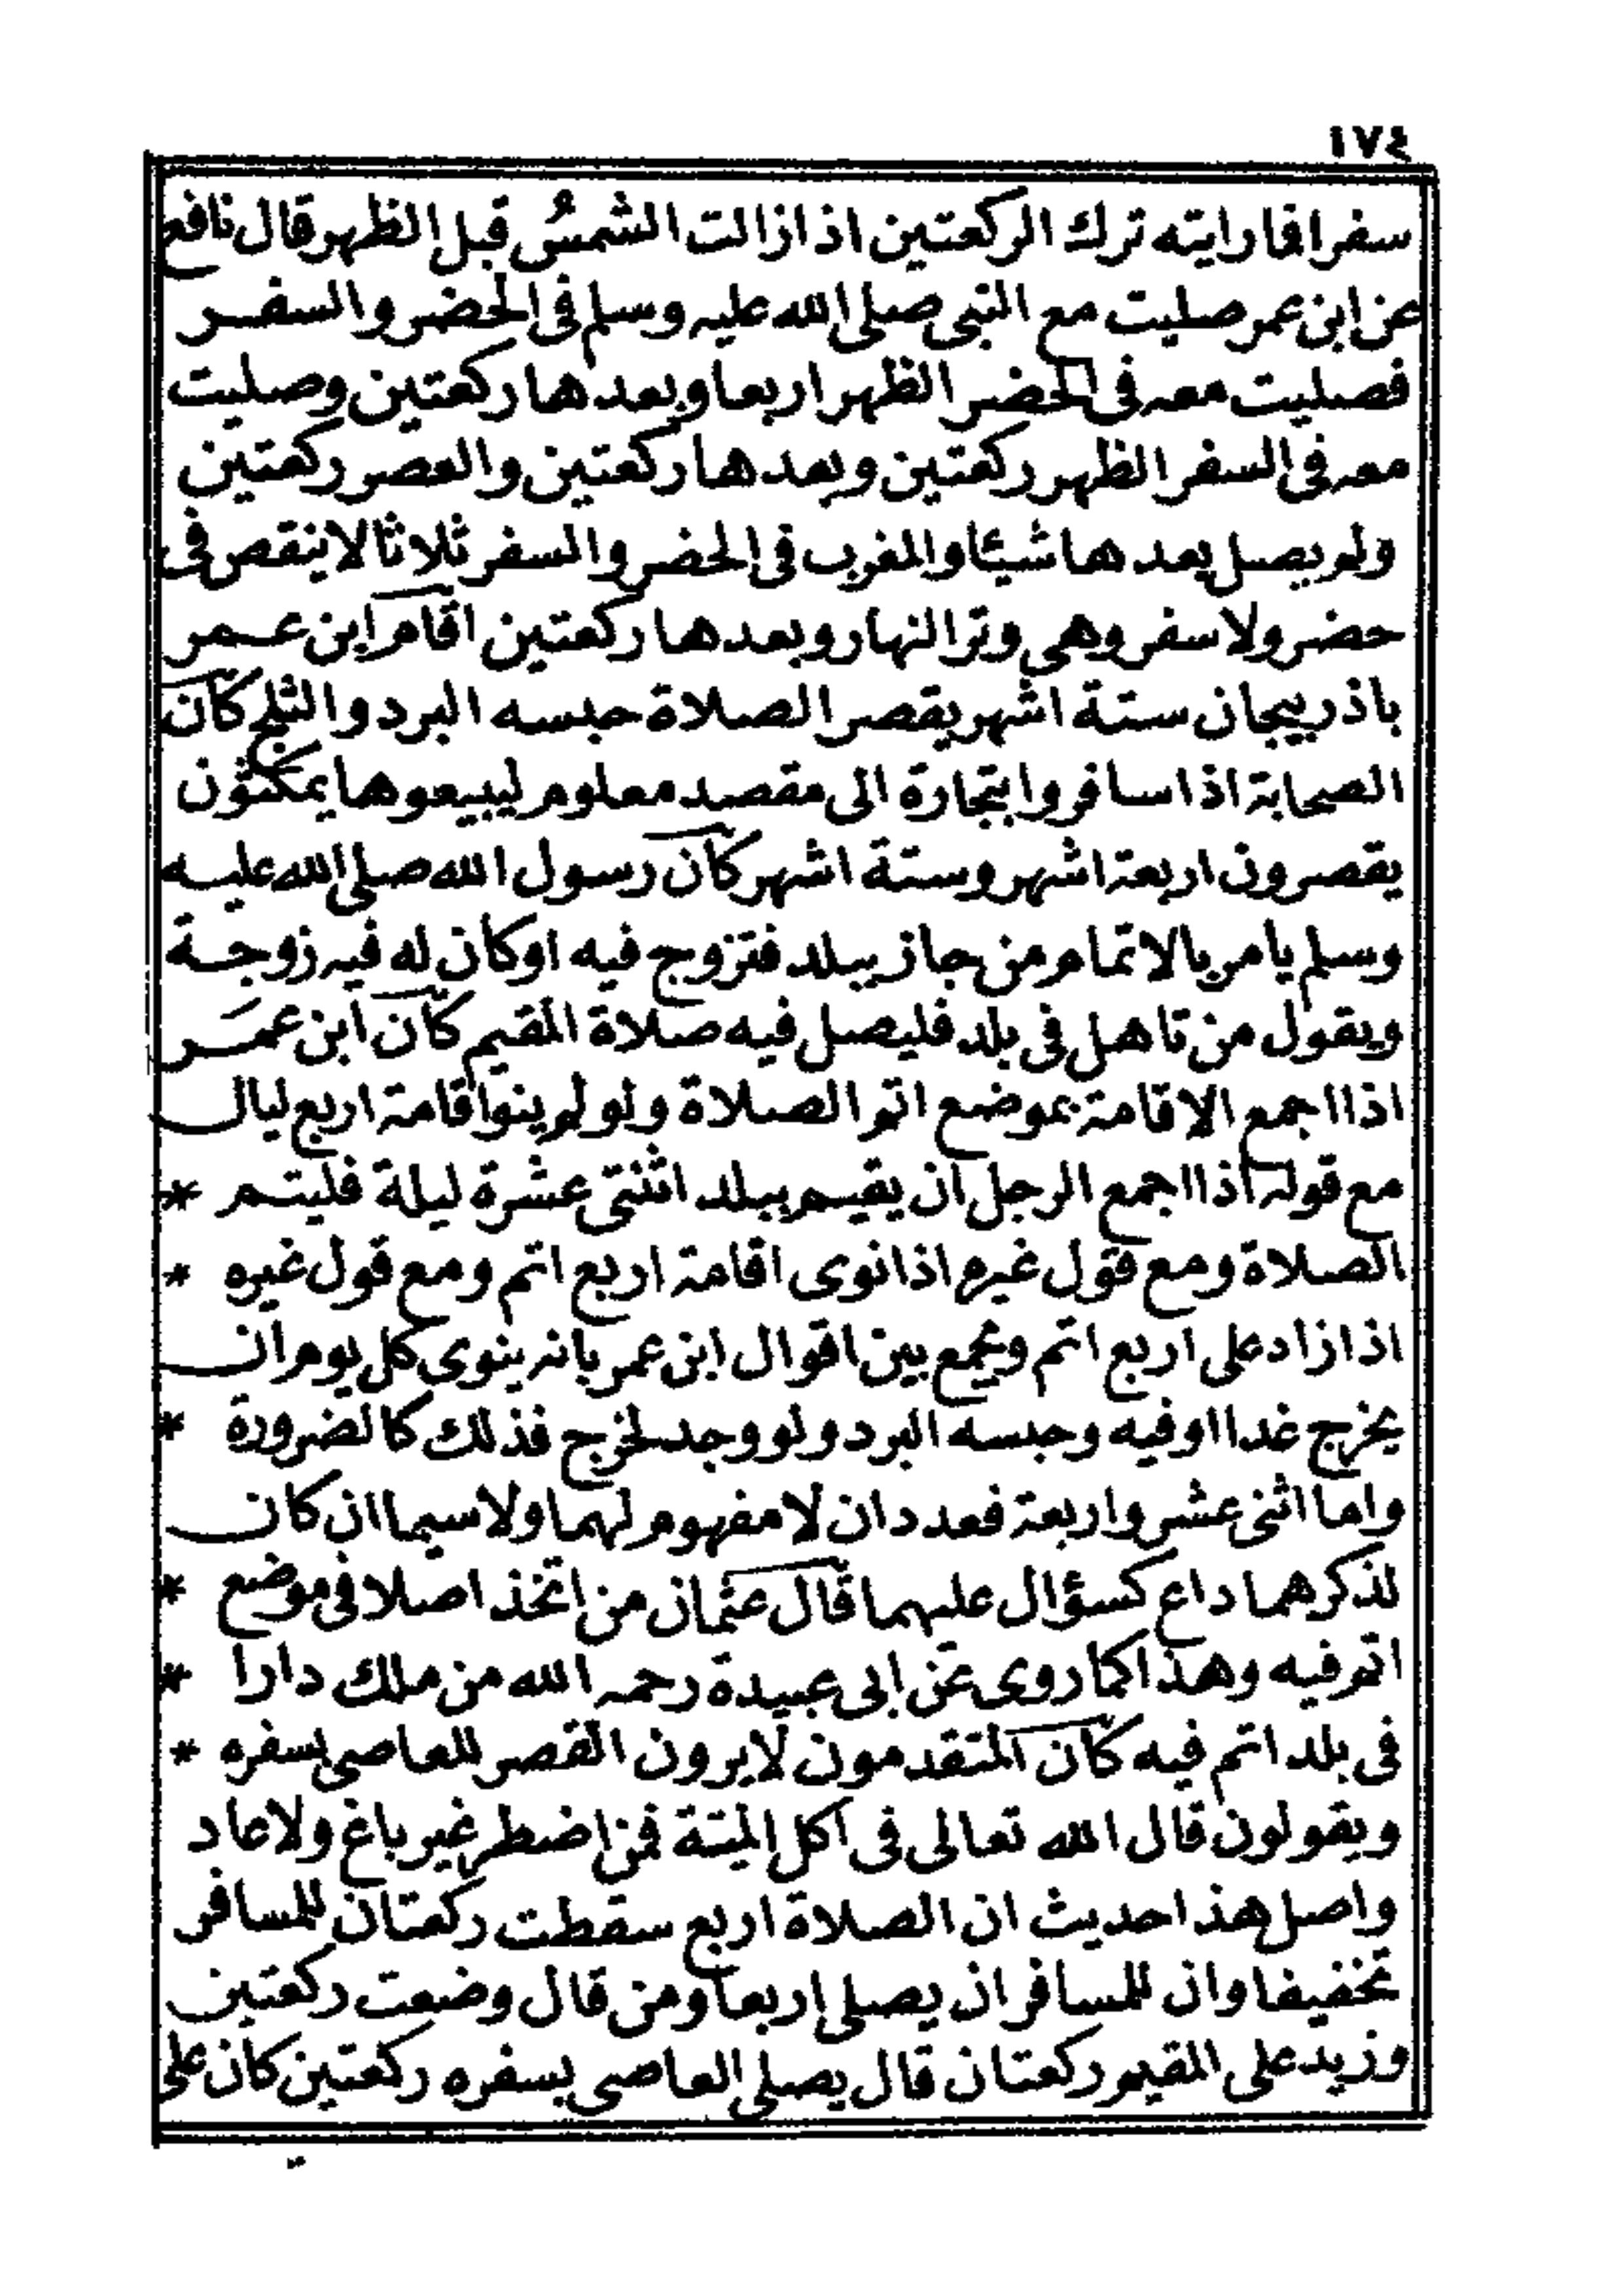 ١٧٤
سفرا فما رايته ترك الركعتين اذا زالت الشمسُ قبل الظهر قال نافع
عن ابن عمر صليت مع النبي صلى الله عليه وسلم فى الحضر والسفر
فصليت معه فى الحضر الظهر اربعا وبعدها ركعتين وصليت
معه فى السفر الظهر ركعتين وبعدها ركعتين والعصر ركعتين
ولم يصل بعدها شيئا والمغرب فى الحضر والسفر ثلاثا لا ينقص فى
حضر ولا سفر وهى وتر النهار وبعدها ركعتين اقام ابن عمر
باذربيجان ستة اشهر يقصر الصلاة حبسه البرد والثلج كان
الصحابة اذا سافروا بتجارة الى مقصد معلوم ليبيعوها يمكثون
يقصرون اربعة اشهر وستة اشهر كان رسول الله صلى الله عليه
وسلم يامر بالاتمام من جاز ببلد فتزوج فيه او كان له فيه زوجة
ويقول من تاهل فى بلد فليصل فيه صلاة المقيم كان ابن عمَر
اذا اجمع الاقامة بموضع اتم الصلاة ولو لم ينو اقامة اربع ليال
مع قوله اذا اجمع الرجل ان يقيم ببلد اثنتى عشرة ليلة فليتم *
الصلاة ومع قول غيره اذا نوى اقامة اربع اتم ومع قول غيره *
اذا زاد على اربع اتم ويجمع بين اقوال ابن عمر بانه ينوى كل يوم ان
يخرج غدا او فيه وحبسه البرد ولو وجد لخرج فذلك كالضرورة *
واما اثنى عشر واربعة فعددان لا مفهوم لهما ولا سيما ان كان
لذكرهما داع كسؤال عليهما قال عثمان من اتخذ اصلا فى موضع *
اتم فيه وهذا كما روى عن ابى عبيدة رحمه الله من ملك دارا *
فى بلد اتم فيه كان المتقدمون لا يرون القصر للعاصى بسفره *
ويقولون قال الله تعالى فى اكل الميتة فمن اضطر غير باغ ولا عاد
واصل هذا حديث ان الصلاة اربع سقطت ركعتان للمسافر
تخفيفا وان للمسافر ان يصلى اربعا ومن قال وضعت ركعتين
وزيد على المقيم ركعتان قال يصلى العاصى بسفره ركعتين كان على